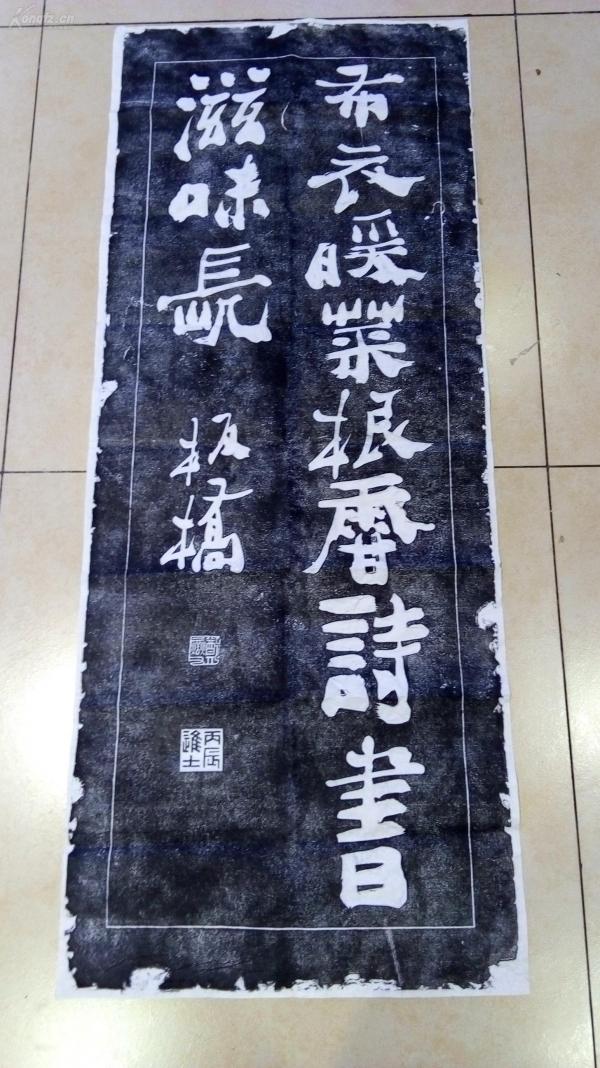 布衣暖菜根香詩書
滋味長
板橋
丙辰進士
Kongfz.cn